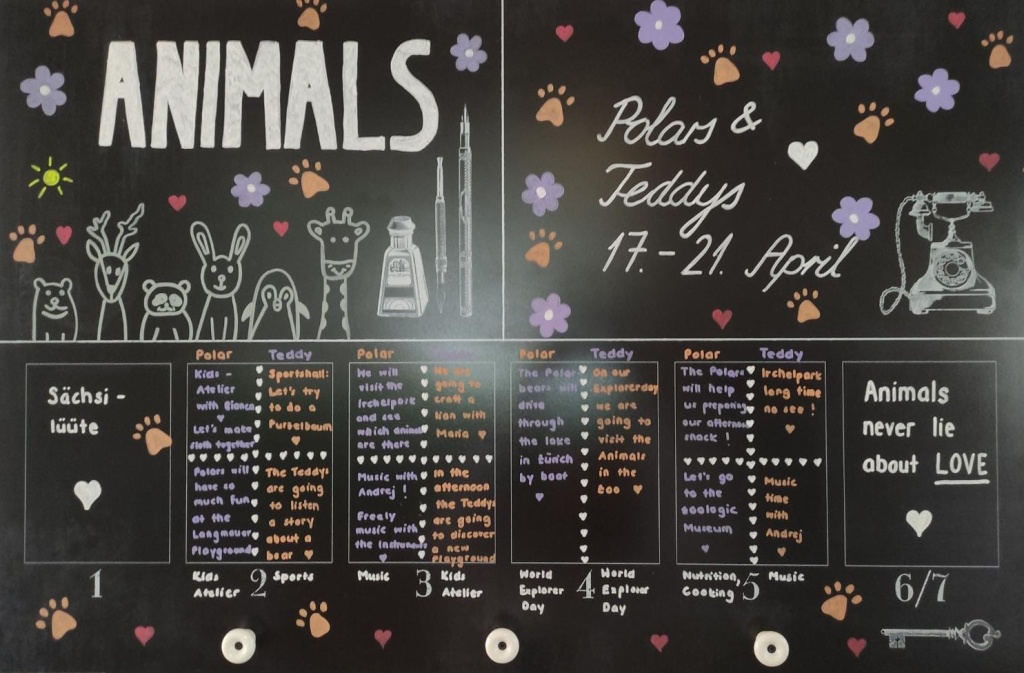 ANIMALS
Polars &
Teddys
17.-21. April
Sächsi-
lüüte
1
Polar
Kids-
Atelier
with Bianca
Let's make
sloth together
Polars will
have so
much fun
at the
Langmauer
Playground
Teddy
Sportshall:
Let's try
to do a
Purzelbaum
The Teddys
are going
to listen
a story
about a
bear
Kids
Atelier
2
Sports
Polar
We will
visit the
Irchelpark
and see
which animal
are there
Music with
Andrej!
Freely
music with
the Instrument
We are
going to
craft a
lion with
Maria
In the
afternoon
the Teddys
are going
to discover
a new
Playground
Music
3
Kids
Atelier
Polar
The Polar
bears will
drive
through
the lake
in Zürich
by boat
Teddy
On our
Explorerday
we are
going to
visit the
Animals
in the
Zoo
World
Explorer
Day
4
World
Explorer
Day
Polar
The Polars
will help
us preparing
our afternoon
snack!
Let's go
to the
zoologic
Museum
Teddy
Irchelpark
long time
no see!
Music
time
with
Andrej
Nutrition,
Cooking
5
Music
Animals
never lie
about LOVE
6/7